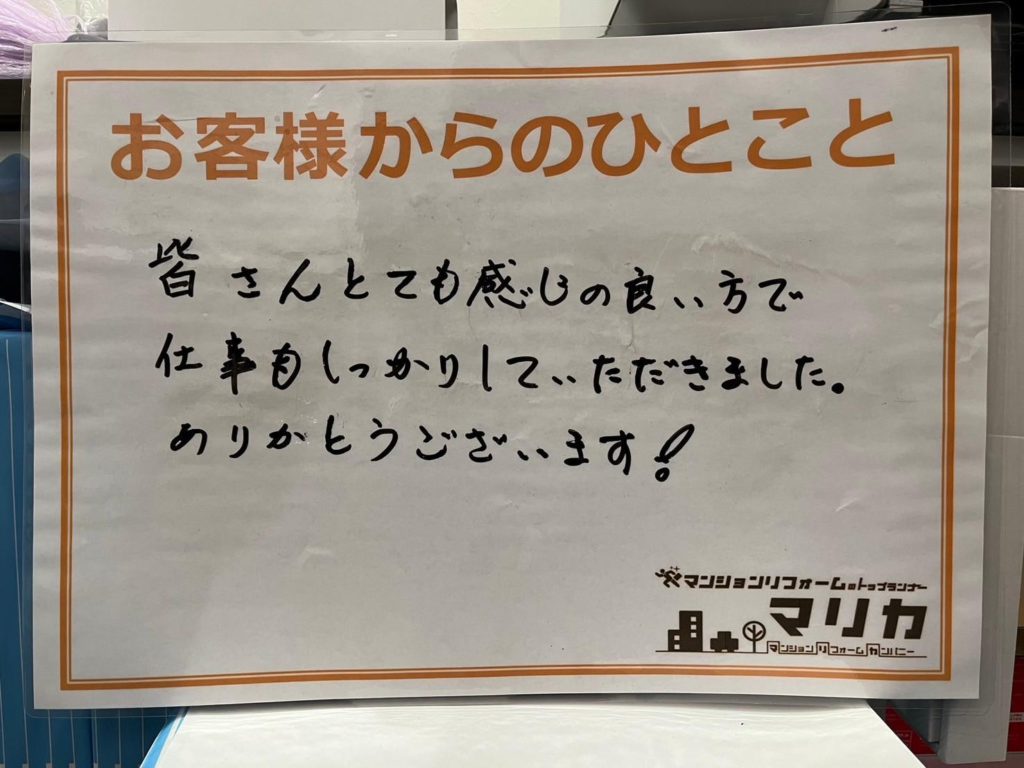 お客様からのひとこと
皆さんとても感じの良い方で
仕事もしっかりしていただきました。
ありがとうございます!
マンションリフォームのトップランナー
マリカ
マンションリフォームカンパニー